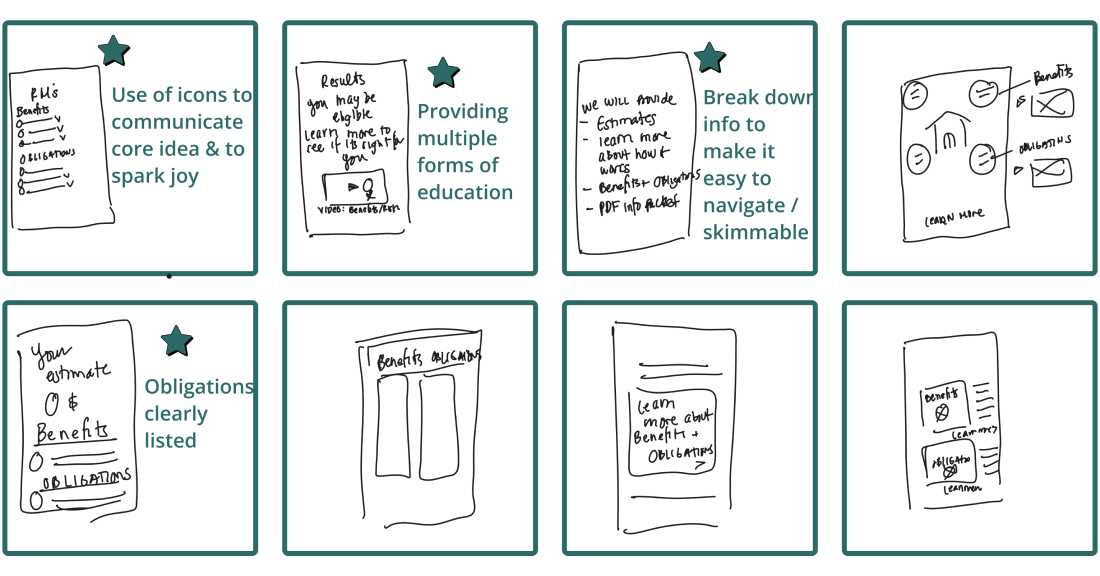 RM's
Benefits
OBLIGATIONS
Use of icons to
communicate
core idea & to
spark joy
Results
you may be
eligible
Learn more to
see if its right for
you
VIDEO: Benefits/
Providing
multiple
forms of
education
we will provide
- Estimates
- learn more
about how it
works
- Benefits + Obligations
- PDF info packet
Break down
info to
make it
easy to
navigate /
skimmable
Benefits
OBLIGATIONS
LEARN MORE
Your
estimate
$
Benefits
OBLIGATIONS
Obligations
clearly
listed
Benefits OBLIGATIONS
Learn
more about
Benefits +
OBLIGATIONS
>
Benefits
Learn more >
OBLIGATION
Learn more